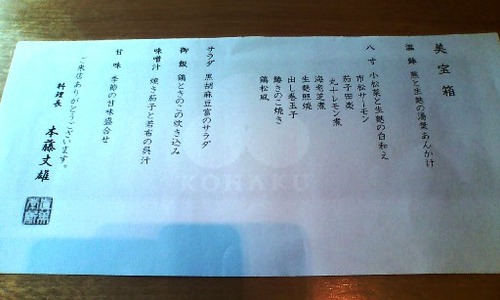 美宝箱
温鉢 蕪と生麩の湯葉あんかけ
八寸 小松菜と生麩の白和え
市松サーモン
茄子田楽
丸十レモン煮
海老芝煮
生麩照焼
出し巻玉子
鰆きのこ焼き
鶏松風
サラダ 黒胡麻豆富のサラダ
御飯 鶏ときのこの炊き込み
味噌汁 焼き茄子と若布の呉汁
甘味 季節の甘味盛合せ
ご来店ありがとうございます。
料理長 本藤丈雄
KOHAKU